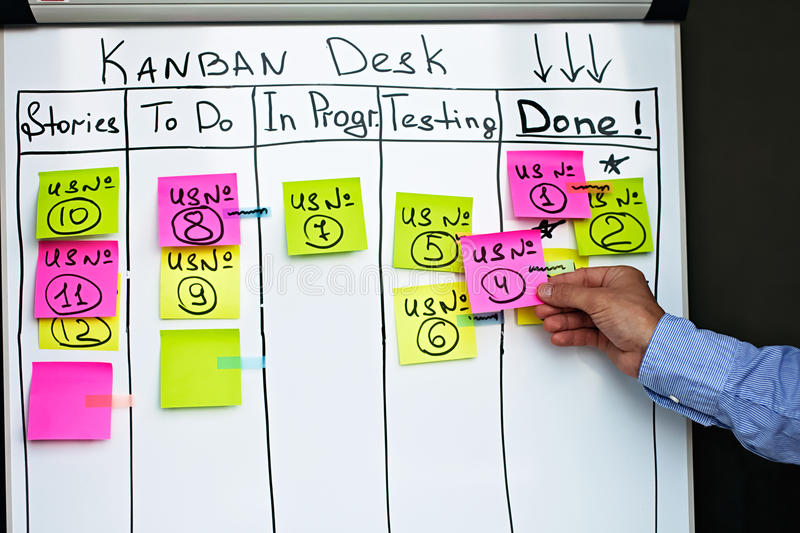 KANBAN Desk
Stories
To Do
In Progr.
Testing
Done!
USNº
10
USNº
11
12
USNº
8
USNº
9
USNº
7
USNº
5
USNº
6
USNº
4
USNº
1
2